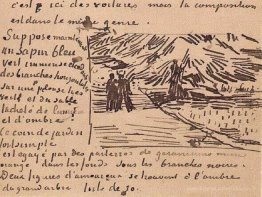 c'est ici des voitures mais la composition
est dans le même genre.
Suppose maintenant
un sapin bleu
vert immense
des branches horizontales
sur une pelouse très
verte et du sable
tacheté de lumière
et d'ombre.
Ce coin de jardin
fort simple
est égayé par des parterres de geraniums mine
orange dans les fonds sous les branches noires.
Deux figures d'amoureux se trouvent à l'ombre
du grand arbre toile de 30.